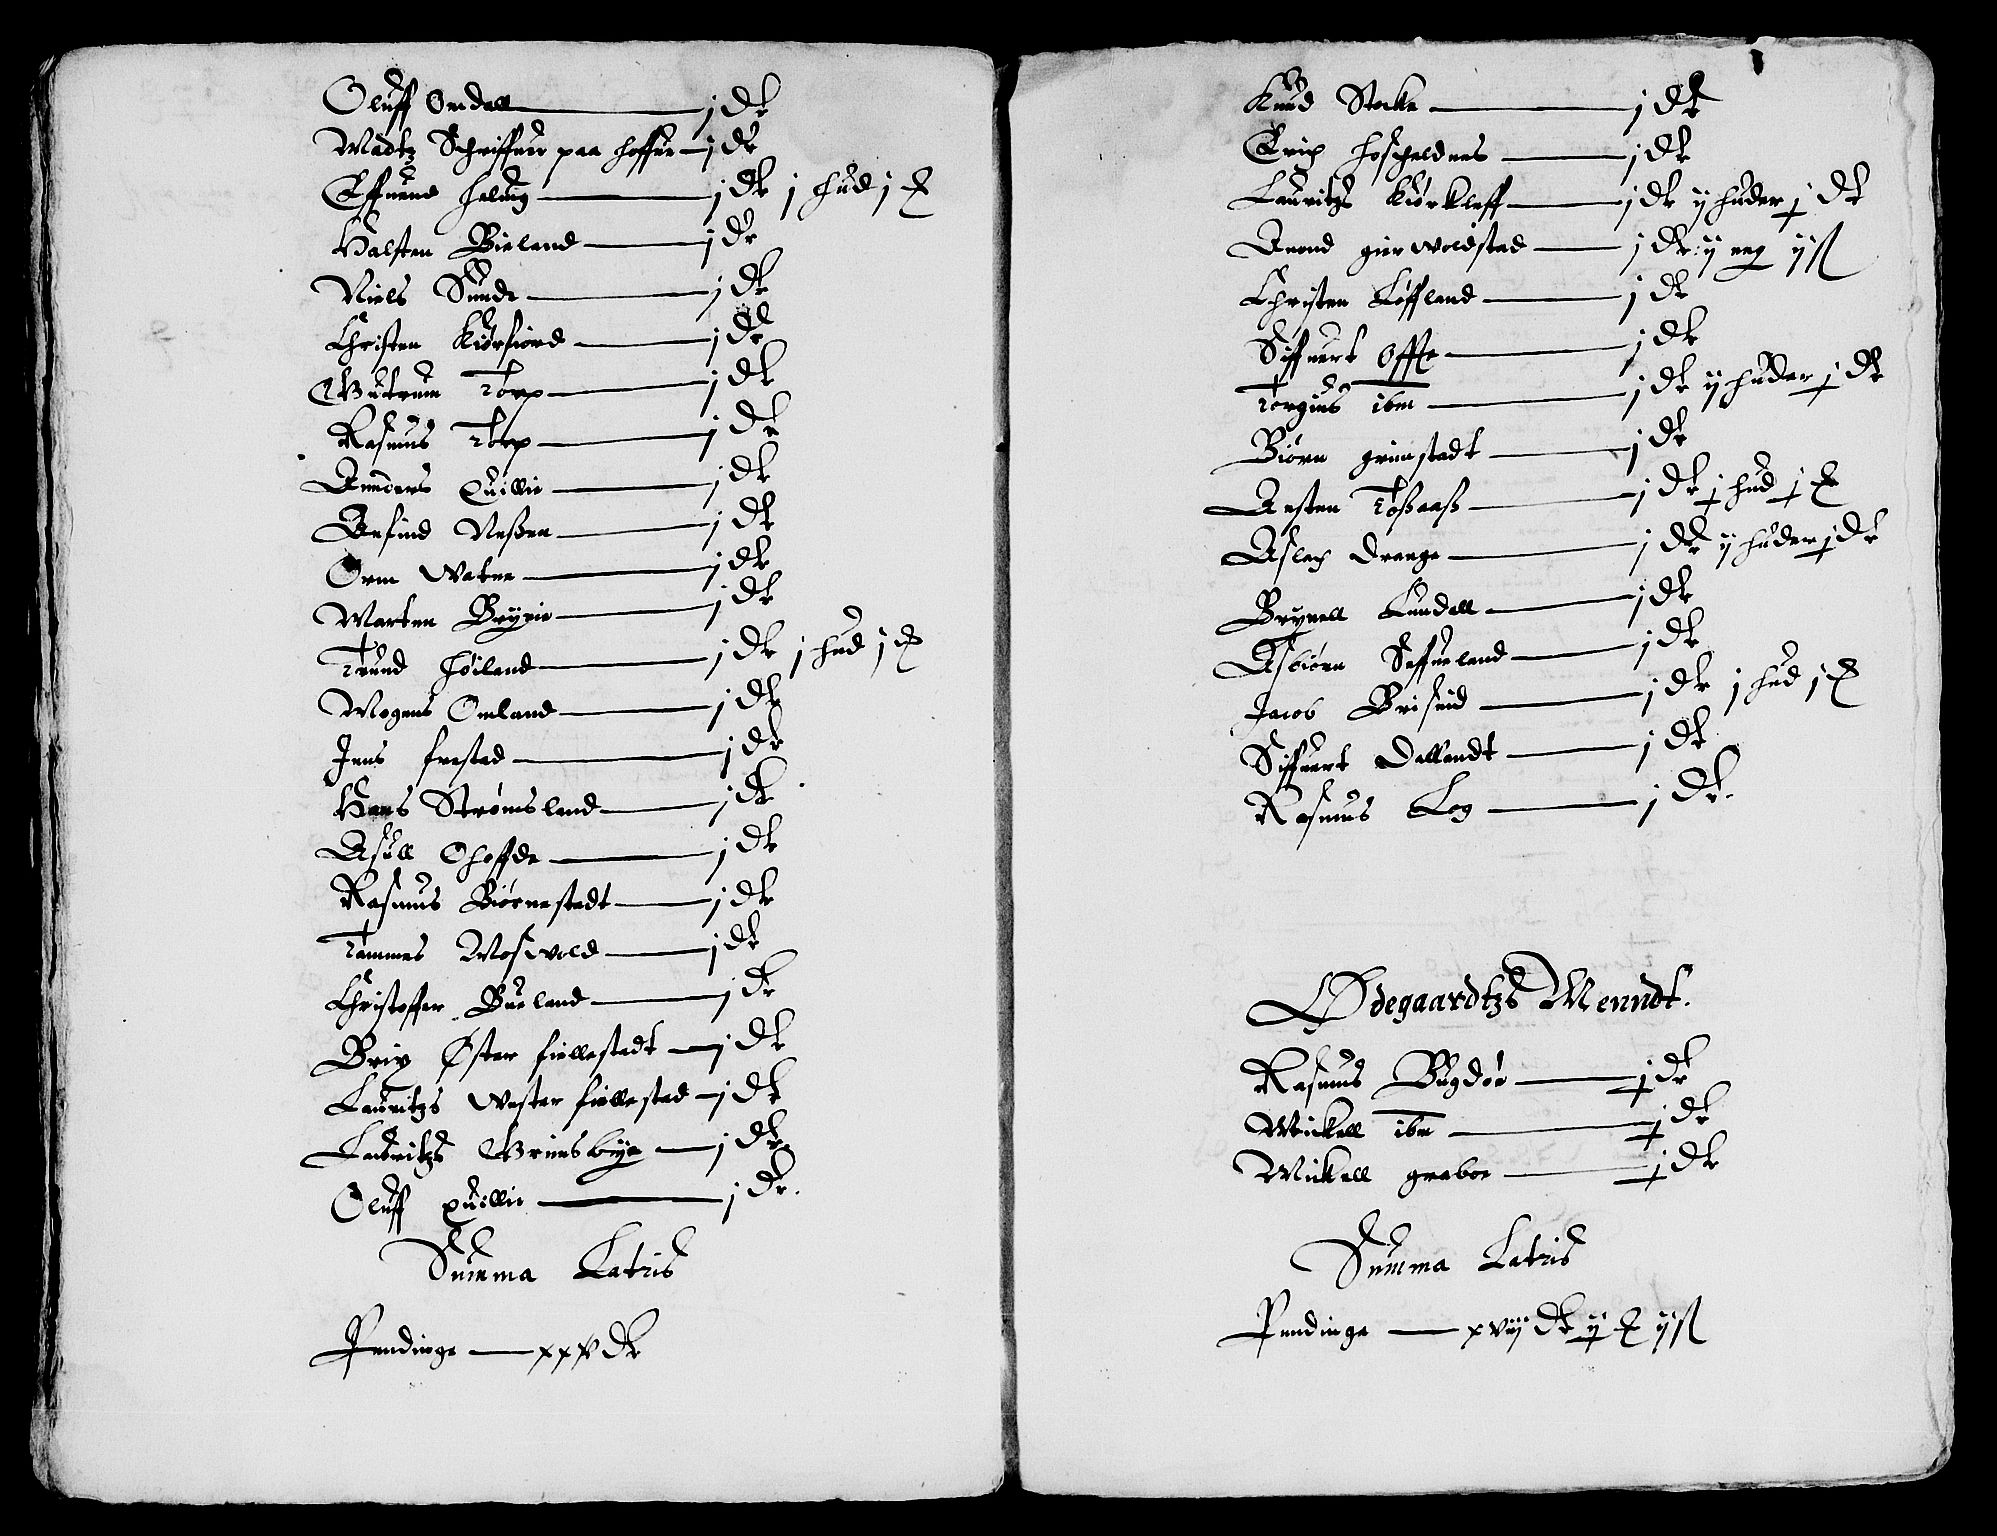 Oluff Omdall — j dr
Madtz Schriffuer paa hoffue — j dr
Effuend heluig — j dr j hud j
Halsten Bieland — j dr
Niels Sunde — j dr
Christen Kiørfiord — j dr
Guttrum Torp — j dr
Rasmus Torp — j dr
Anders Quillie — j dr
Befind Neßen — j dr
Orm Watne — j dr
Marten Bryni — j dr
Trund høiland — j dr j hud j
Mogens Omland — j dr
Jens frestad — j dr
Hans Strømsland — j dr
Asull Ohoffde — j dr
Rasmus Biørnestadt — j dr
Tammes Moswold — j dr
Christoffer Bueland — j dr
Erix Øster fiellestadt — j dr
Lauritzs Wester fiellestad — j dr
Lauritzs Grimsbye — j dr
Oluff quillie — j dr.
Summa Latris
Pendinge — xxv dr
Knud Stocke — j dr
Erix hoskeldnes — j dr
Lauritzs Kiørkleff — j dr ij huder j dr
Anond gierwoldstad — j dr: ij ij ß
Christen Løffland — j dr
Siffuert Offte — j dr
Torgius ibm — j dr ij huder j dr
Biørn grimstadt — j dr
Aesten Toßaaß — j dr j hud j
Aslax Drange — j dr ij huder j dr
Brynell Lundell — j dr
Asbiørn Seffueland — j dr
Jacob Briseid — j dr j hud j
Siffuert Dallandt — j dr
Rasmus Log — j dr.
Ødegaardtzs Menndt.
Rasmus Bugdøe — j dr
Mickell ibm — j dr
Mickell graboe — j dr
Summa Latris
Pendinge — xviij dr ij ij ß